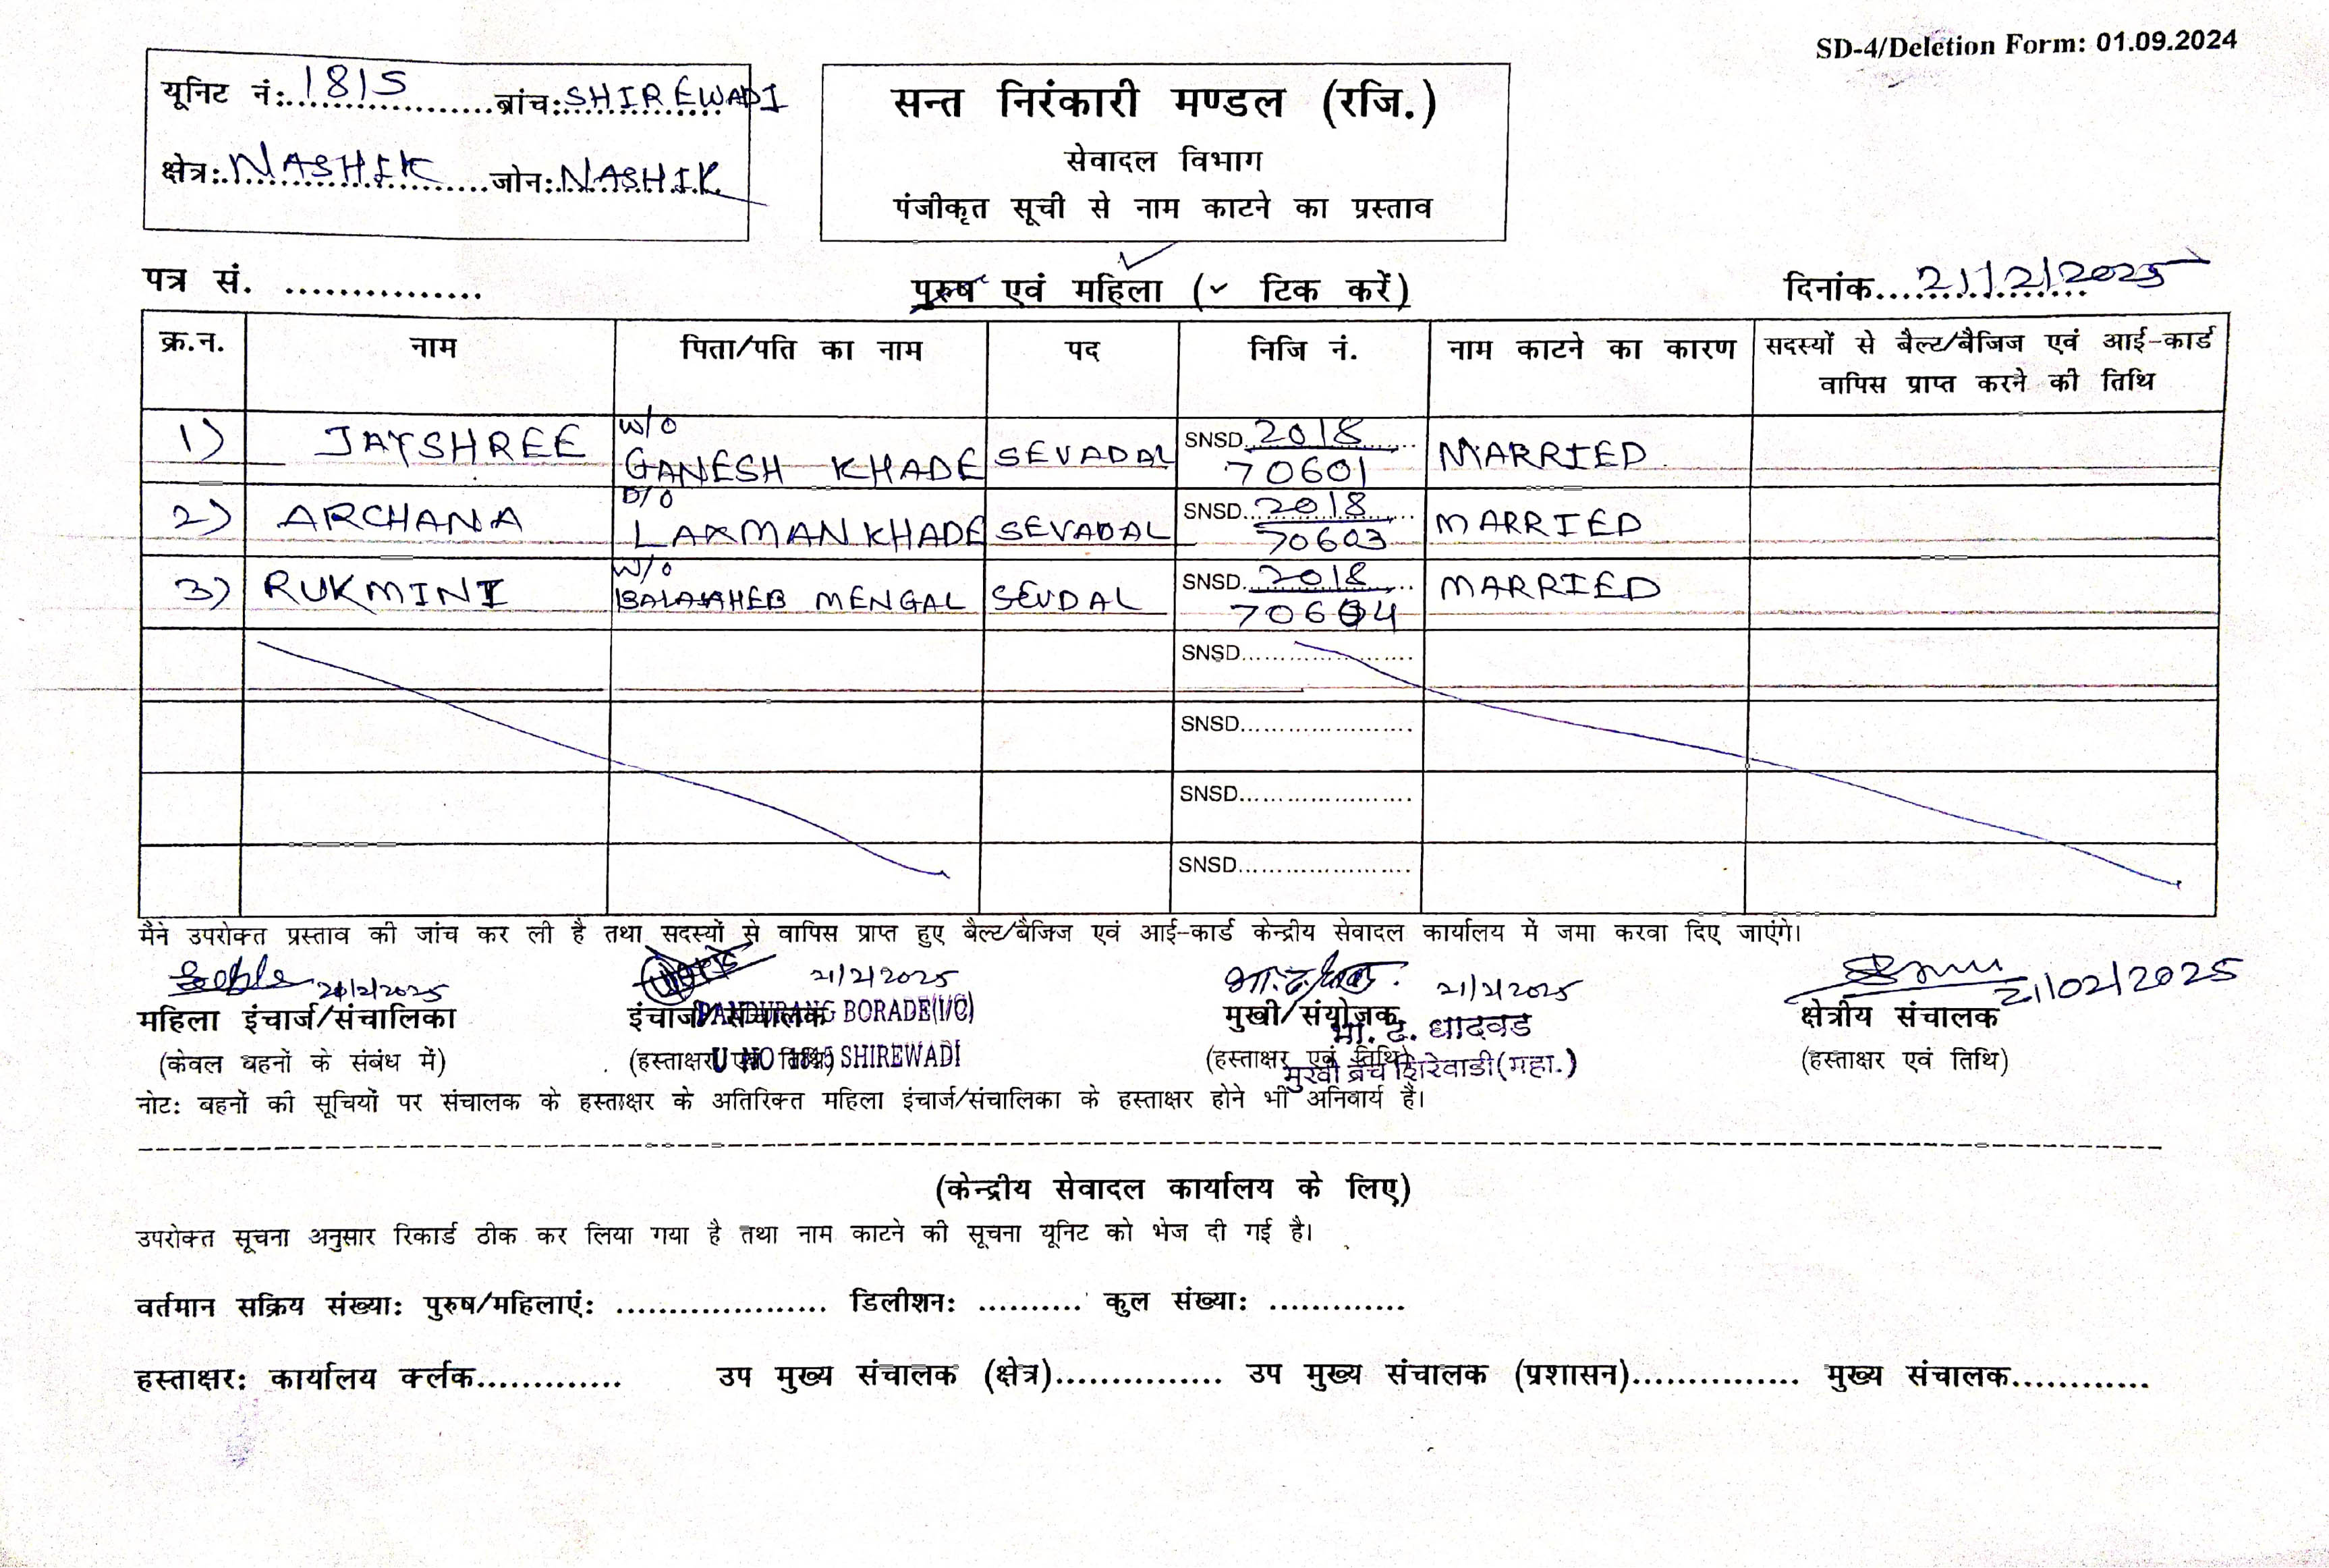 SD-4/Deletion Form: 01.09.2024
यूनिट नं:.1815....................ब्रांच:SHIREWADI
क्षेत्र:.NASHIK.......................जोन:NASHIK
सन्त निरंकारी मण्डल (रजि.)
सेवादल विभाग
पंजीकृत सूची से नाम काटने का प्रस्ताव
पत्र सं. ...............
पुरुष एवं महिला (✓ टिक करें)
दिनांक....21/2/2025
क्र.न. नाम पिता/पति का नाम पद निजि नं. नाम काटने का कारण सदस्यों से बैल्ट/बैजिज एवं आई-कार्ड वापिस प्राप्त करने की तिथि
1) JAYSHREE W/O GANESH KHADE SEVADAL SNSD 2018 70601 MARRIED
2) ARCHANA D/O LAXMAN KHADE SEVADAL SNSD 2018 70603 MARRIED
3) RUKMINI W/O BALASAHEB MENGAL SEVDAL SNSD 2018 70604 MARRIED
SNSD......................
SNSD......................
SNSD......................
SNSD......................
मैने उपरोक्त प्रस्ताव की जांच कर ली है तथा सदस्यों से वापिस प्राप्त हुए बैल्ट/बैजिज एवं आई-कार्ड केन्द्रीय सेवादल कार्यालय में जमा करवा दिए जाएंगे।
21/2/2025 21/2/2025 21/2/2025 21/02/2025
महिला इंचार्ज/संचालिका इंचार्ज/संचालक PANDURANG BORADE(I/C) मुखी/संयोजक भा. द. धादवड क्षेत्रीय संचालक
(केवल बहनों के संबंध में) (हस्ताक्षर एवं तिथि) U NO 1815 SHIREWADI (हस्ताक्षर एवं तिथि) मुखी ब्रँच शिरेवाडी(महा.) (हस्ताक्षर एवं तिथि)
नोट: बहनों की सूचियों पर संचालक के हस्ताक्षर के अतिरिक्त महिला इंचार्ज/संचालिका के हस्ताक्षर होने भी अनिवार्य है।
(केन्द्रीय सेवादल कार्यालय के लिए)
उपरोक्त सूचना अनुसार रिकार्ड ठीक कर लिया गया है तथा नाम काटने की सूचना यूनिट को भेज दी गई है।
वर्तमान सक्रिय संख्या: पुरुष/महिलाएं: .................... डिलीशन: .......... कुल संख्या: .............
हस्ताक्षर: कार्यालय क्लर्क............. उप मुख्य संचालक (क्षेत्र)............... उप मुख्य संचालक (प्रशासन)............... मुख्य संचालक............